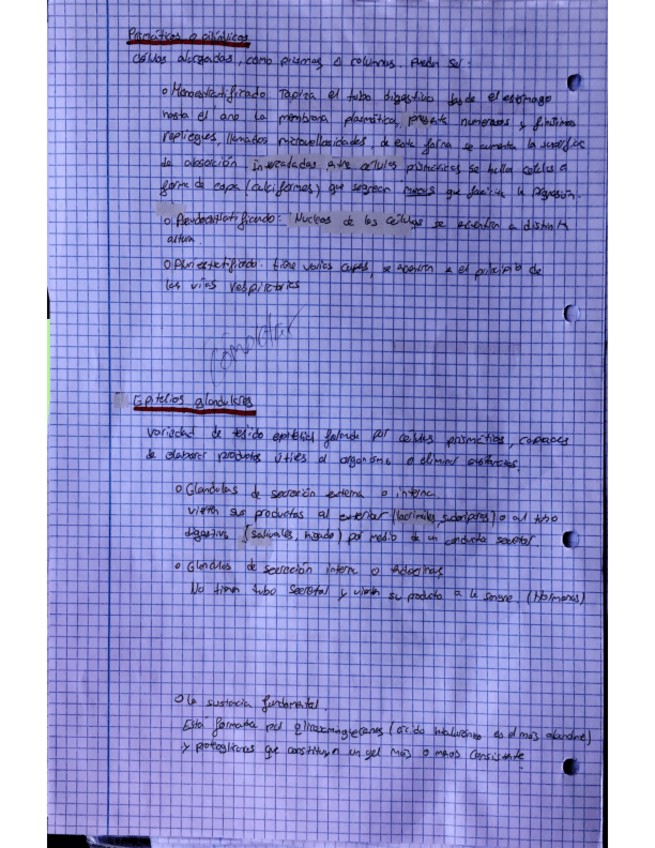 Prismáticos o cilíndricos
Células alargadas, como prismas o columnas. Pueden ser:
o Monoestratificado. Tapiza el tubo digestivo desde el estómago
hasta el ano. La membrana plasmática, presenta numerosos y finísimos
repliegues, llamados microvellosidades, de esta forma se aumenta la superficie
de absorción. Intercaladas entre células prismáticas se halla células a
forma de copa (caliciformes) que segregan mucus que facilita la
o Pseudoestratificado: Nucleos de las células se encuentran a distinta
altura.
o Pluriestratificado: tiene varias capas, se encuentra a el principio de
las vías respiratorias
Epitelios glandulares
Variedad de tejido epitelial formado por células prismáticas, capaces
de elaborar productos útiles al organismo o eliminar sustancias.
o Glandulas de secreción externa o interna
vierten sus productos al exterior (lacrimales, sudoríparas) o al tubo
digestivo (salivales, higado) por medio de un conducto secretor.
o Glandulas de secreción interna o Endocrinas
No tienen tubo secretal y vierten su producto a la sangre. (Hormonas)
o La sustacia fundamental.
Esta formada por (ácido hialurónico es el más abundante)
y proteoglicanos que constituyen un gel más o menos consistente